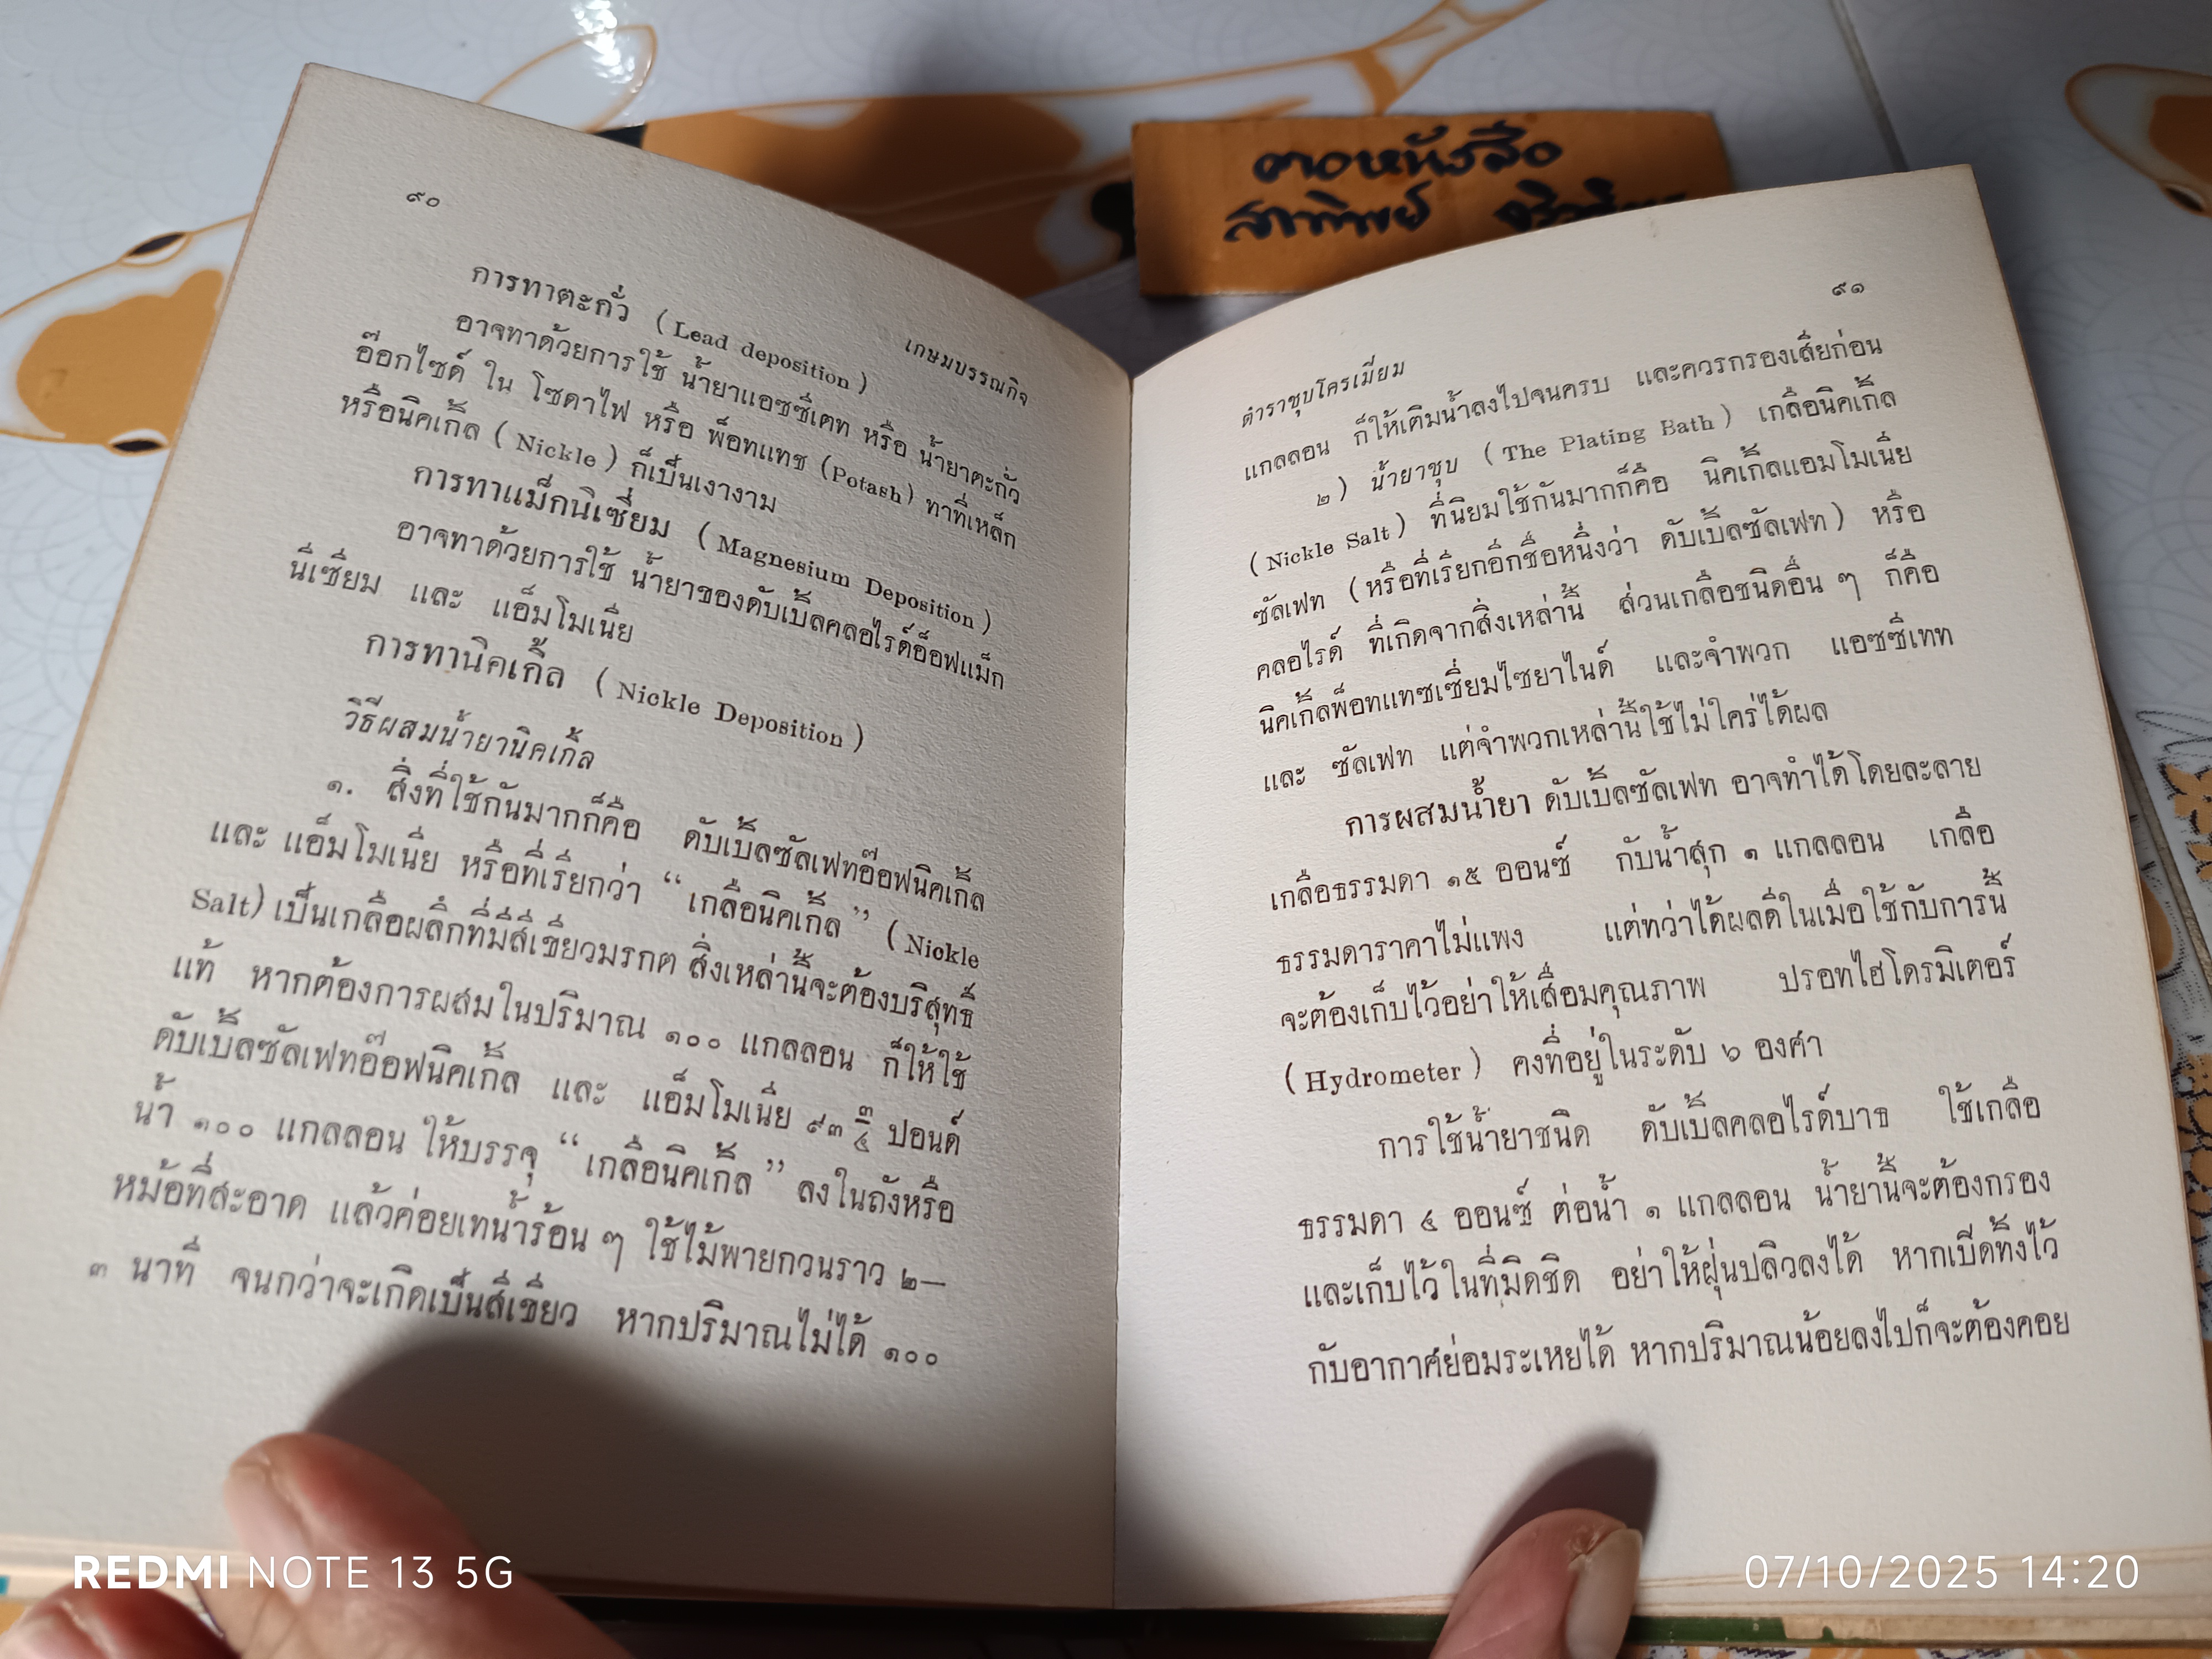 ตอหนังสือ
สาทิพย์
๙๐
เกษมบรรณกิจ
การทาตะกั่ว (Lead deposition)
อาจทาด้วยการใช้ น้ำยาแอซซี่เตท หรือ น้ำยาตะกั่ว
อ๊อกไซด์ ใน โซดาไฟ หรือ พ็อทแทช (Potash) ทาที่เหล็ก
หรือนิคเกิ้ล (Nickle) ก็เป็นเงางาม
การทาแม็กนิเซี่ยม (Magnesium Deposition)
อาจทาด้วยการใช้ น้ำยาของดับเบิ้ลคลอไรด์อ็อฟแม็ก
นี่เซี่ยม และ แอ็มโมเนี่ย
การทานิคเกิ้ล (Nickle Deposition)
วิธีผสมน้ำยานิคเกิ้ล
๑. สิ่งที่ใช้กันมากก็คือ ดับเบิ้ลซัลเฟทอ๊อฟนิคเกิ้ล
และ แอ็มโมเนี่ย หรือที่เรียกว่า “เกลือนิคเกิ้ล” (Nickle
Salt) เป็นเกลือผลึกที่มีสีเขียวมรกต สิ่งเหล่านี้จะต้องบริสุทธิ์
แท้ หากต้องการผสมในปริมาณ ๑๐๐ แกลลอน ก็ให้ใช้
ดับเบิ้ลซัลเฟทอ๊อฟนิคเกิ้ล และ แอ็มโมเนีย ๙๓ ๓/๔ ปอนด์
น้ำ ๑๐๐ แกลลอน ให้บรรจุ “เกลือนิคเกิ้ล” ลงในถังหรือ
หม้อที่สะอาด แล้วค่อยเทน้ำร้อน ๆ ใช้ไม้พายกวนราว ๒—
๓ นาที จนกว่าจะเกิดเป็นสีเขียว หากปริมาณไม่ได้ ๑๐๐
๙๑
ตำราชุบโครเมี่ยม
แกลลอน ก็ให้เติมน้ำลงไปจนครบ และควรกรองเสียก่อน
๒) น้ำยาชุบ (The Plating Bath) เกลือนิคเกิ้ล
(Nickle Salt) ที่นิยมใช้กันมากก็คือ นิคเกิ้ลแอมโมเนี่ย
ซัลเฟท (หรือที่เรียกอีกชื่อหนึ่งว่า ดับเบิ้ลซัลเฟท) หรือ
คลอไรด์ ที่เกิดจากสิ่งเหล่านี้ ส่วนเกลือชนิดอื่น ๆ ก็คือ
นิคเกิ้ลพ็อทแทซเซี่ยมไซยาไนด์ และจำพวก แอซซี่เทท
และ ซัลเฟท แต่จำพวกเหล่านี้ใช้ไม่ใคร่ได้ผล
การผสมน้ำยา ดับเบิ้ลซัลเฟท อาจทำได้โดยละลาย
เกลือธรรมดา ๑๕ ออนซ์ กับน้ำสุก ๑ แกลลอน เกลือ
ธรรมดาราคาไม่แพง แต่ทว่าได้ผลดีในเมื่อใช้กับการนี้
จะต้องเก็บไว้อย่าให้เสื่อมคุณภาพ ปรอทไฮโดรมิเตอร์
(Hydrometer) คงที่อยู่ในระดับ ๖ องศา
การใช้น้ำยาชนิด ดับเบิ้ลคลอไรด์บาธ ใช้เกลือ
ธรรมดา ๔ ออนซ์ ต่อน้ำ ๑ แกลลอน น้ำยานี้จะต้องกรอง
และเก็บไว้ในที่มิดชิด อย่าให้ฝุ่นปลิวลงได้ หากเปิดทิ้งไว้
กับอากาศย่อมระเหยได้ หากปริมาณน้อยลงไปก็จะต้องคอย
REDMI NOTE 13 5G
07/10/2025 14:20